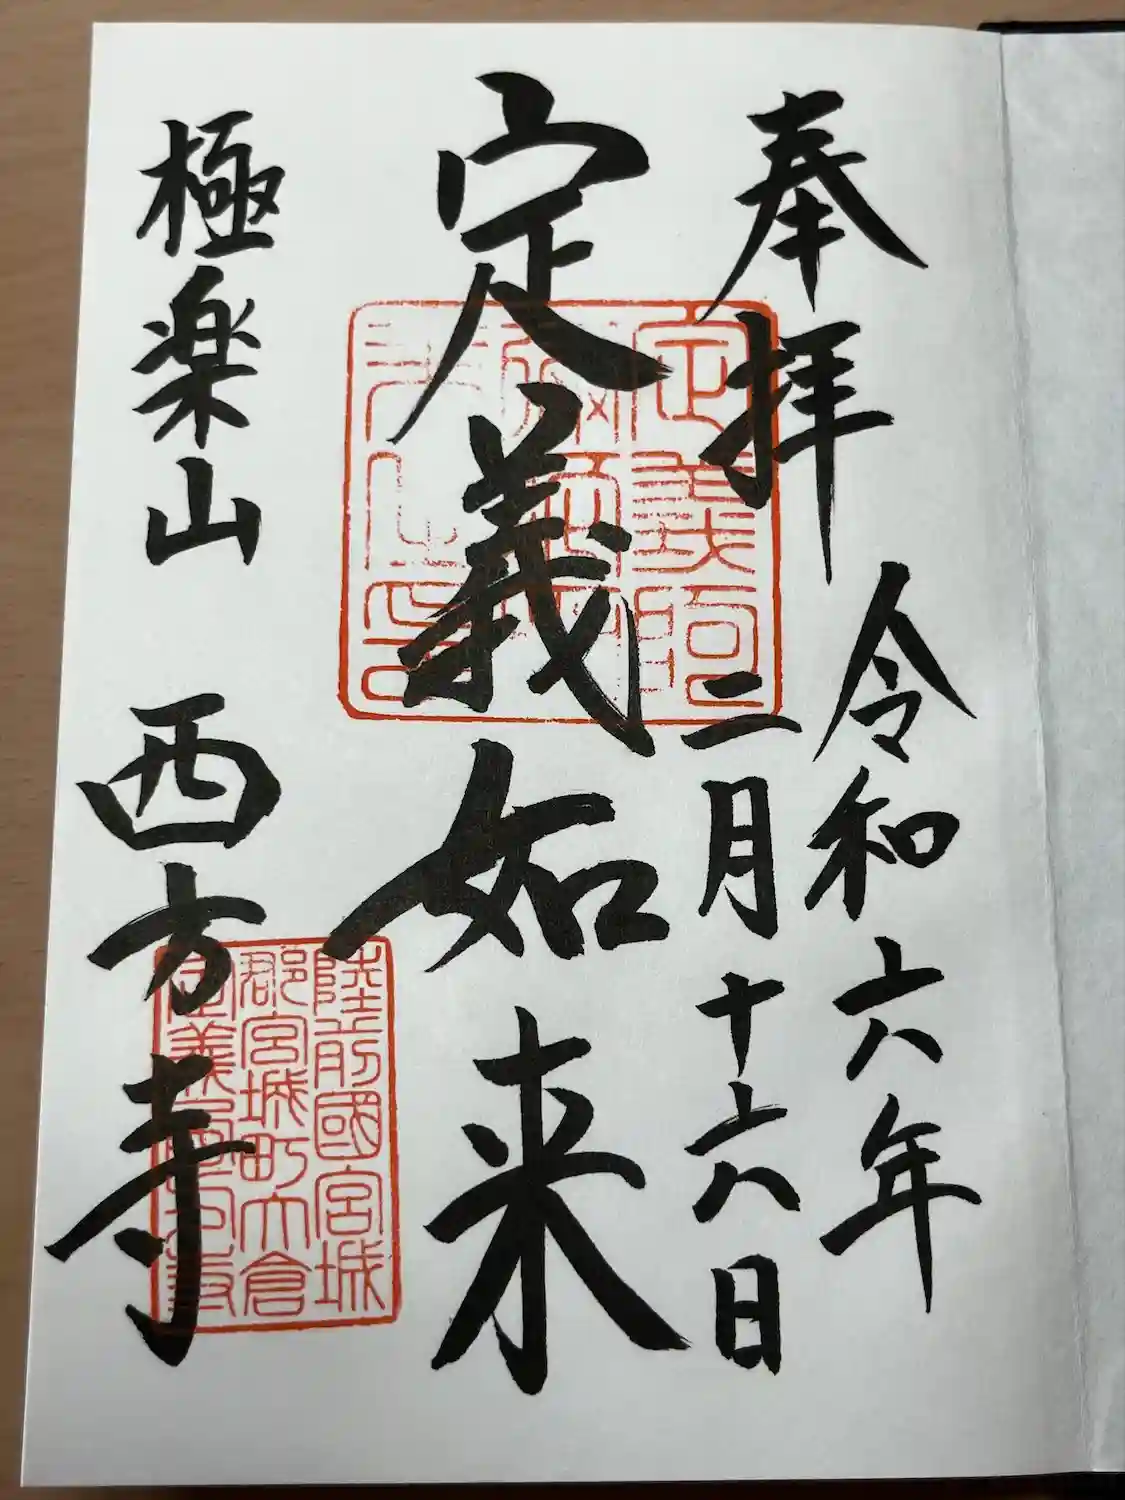 奉拝
令和六年
二月十六日
定義如来
極楽山 西方寺
定義阿
陸前國宮城
郡宮城町大倉